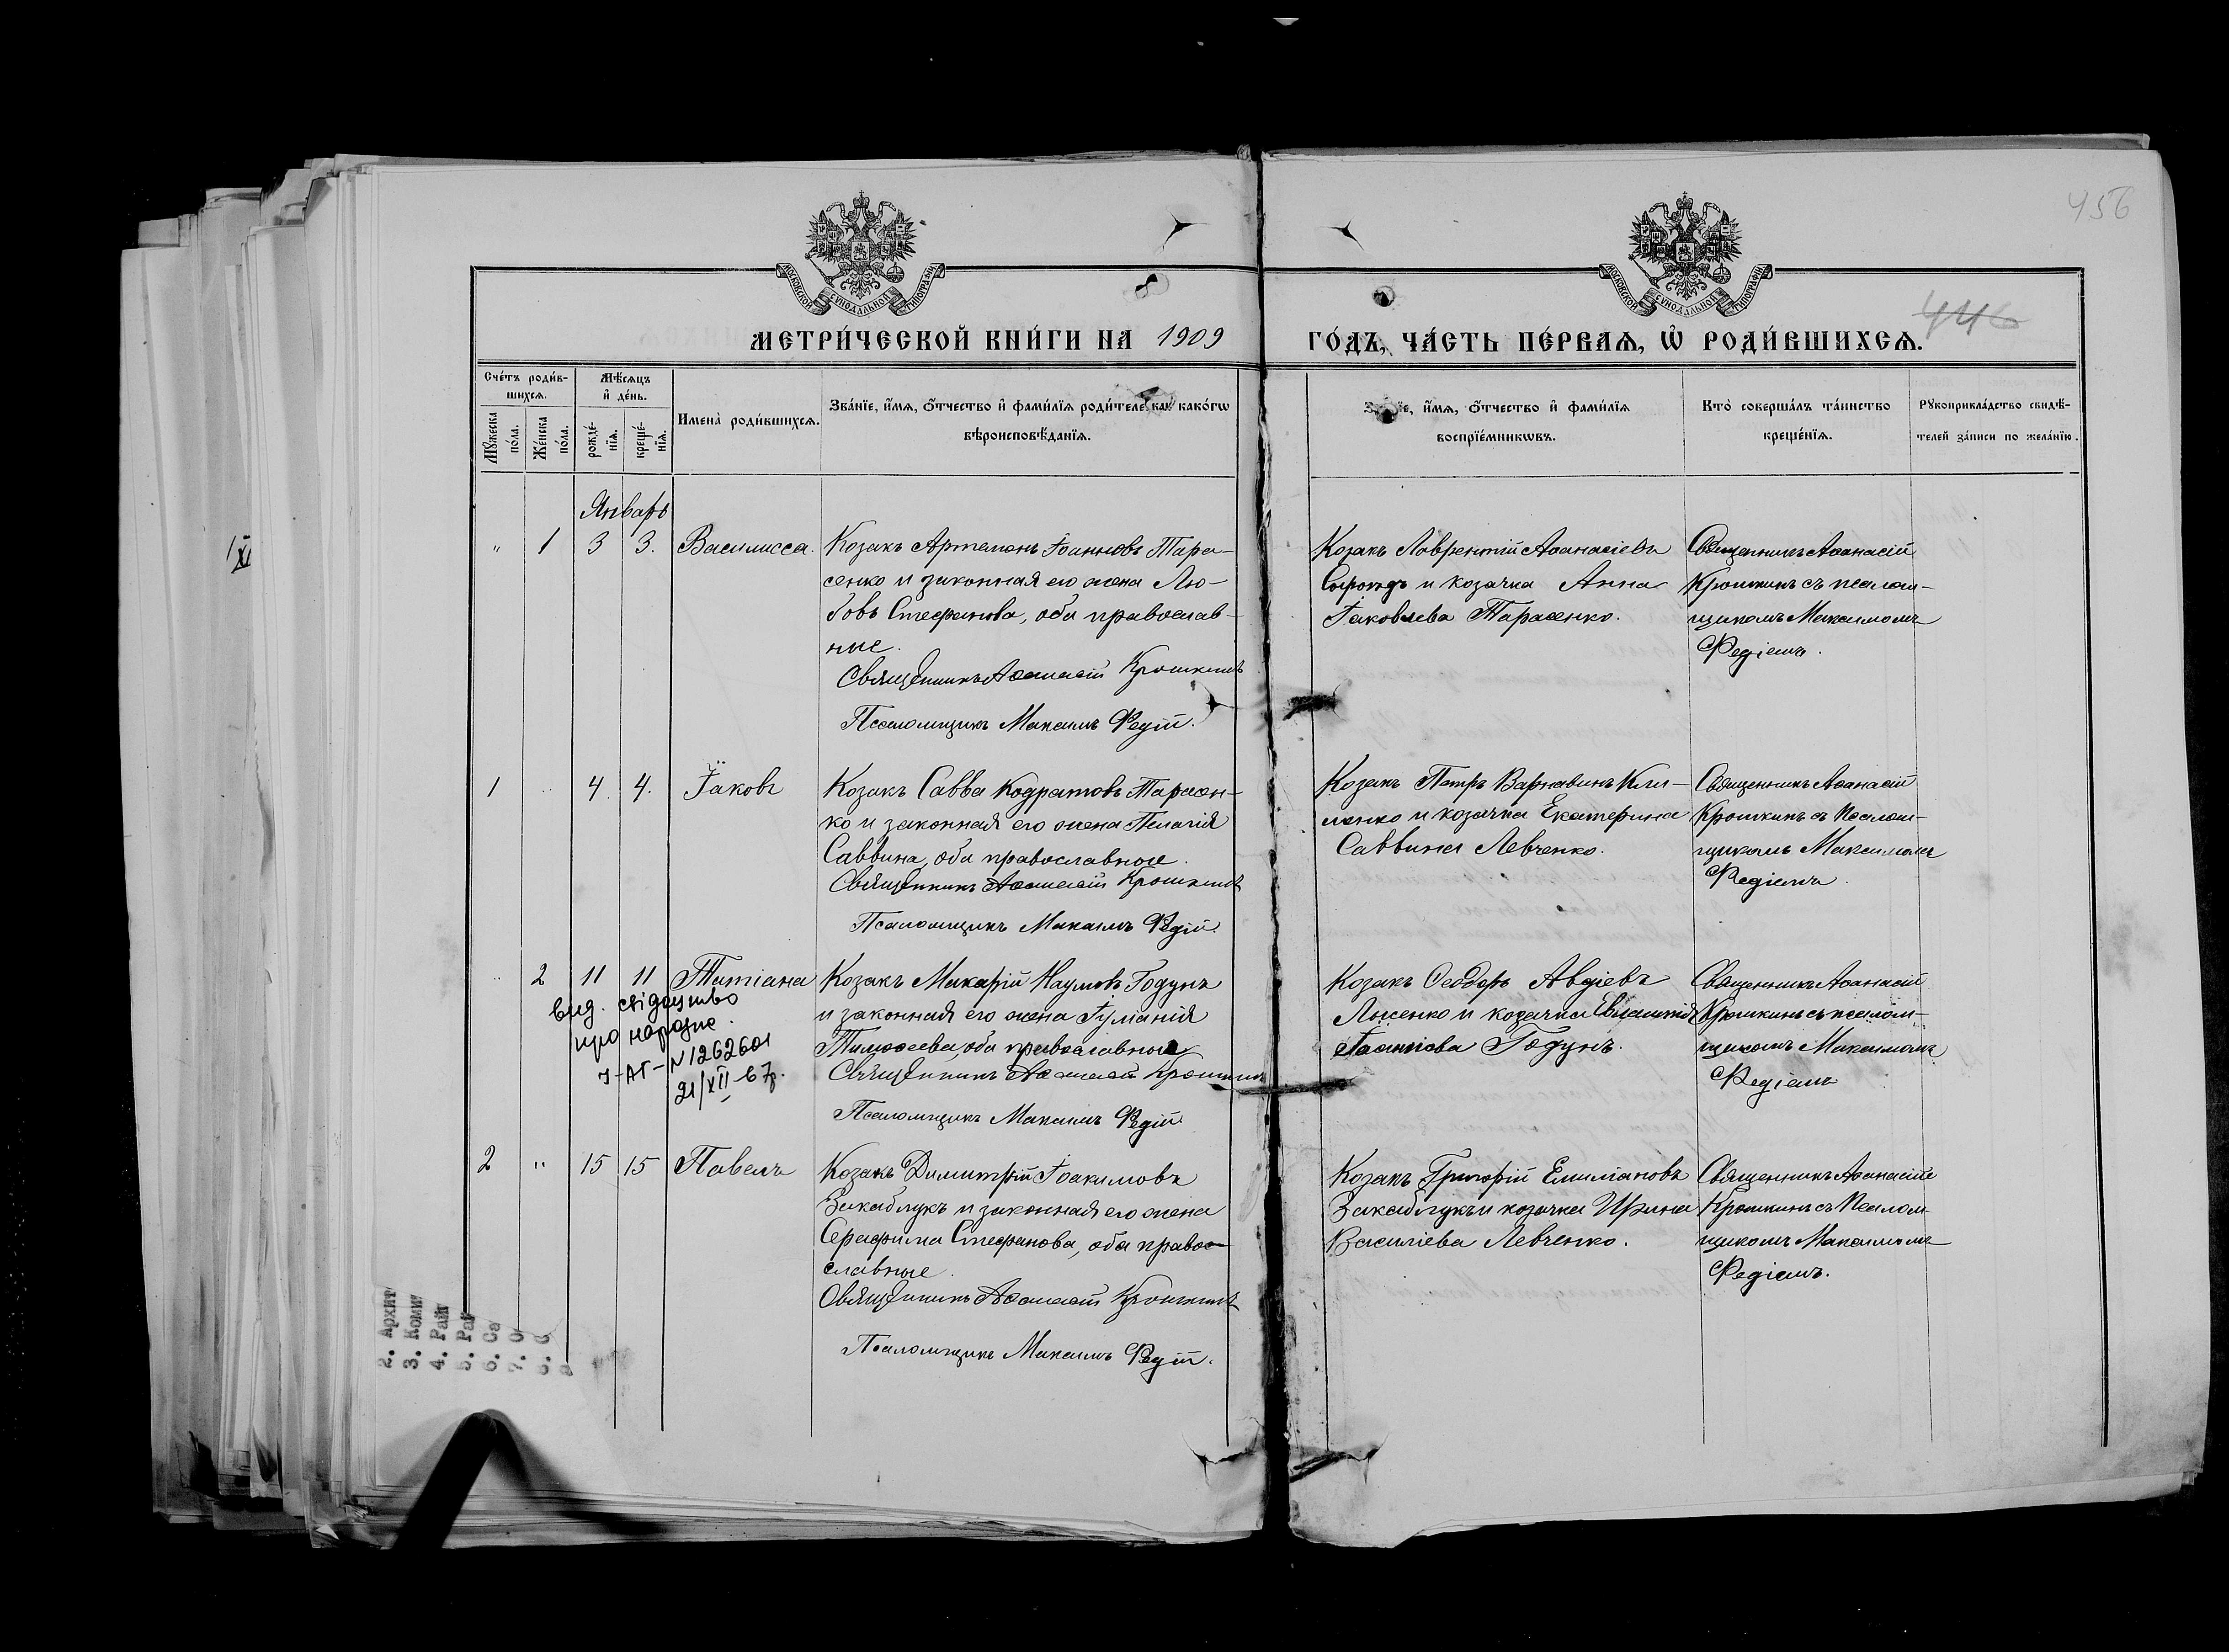 456
МОСКОВСКОЙ СУНОДАЛЬНОЙ ТИПОГРАФІИ
МОСКОВСКОЙ СУНОДАЛЬНОЙ ТИПОГРАФІИ
446
МЕТРИ́ЧЕСКОЙ КНИ́ГИ НА 1909 ГО́ДЪ, ЧА́СТЬ ПЕ́РВАѦ, Ѡ҆ РОДИ́ВШИХСѦ.
Сче́тъ роди́в-
шихсѧ.
Мꙋ́жеска
по́ла.
Же́нска
по́ла.
Мѣ́сѧцъ
и҆ де́нь.
рожде́-
нїѧ.
креще́-
нїѧ.
Имена̀ роди́вшихсѧ.
Зва́нїе, и҆́мѧ, ѻ҆́тчество и҆ фами́лїѧ роди́телей, како́гѡ
вѣроисповѣ́данїѧ.
и҆́мѧ, ѻ҆́тчество и҆ фами́лїѧ
воспрїе́мникѡвъ.
Кто̀ соверша́лъ та́инство
креще́нїѧ.
Рꙋкоприкла́дство свидѣ́-
телей за́писи по жела́нїю.
Январь
" 1 3 3. Василисса.
Козакъ Артемонъ Іоанновъ Тара-
сенко и законная его жена Лю-
бовь Стефанова, оба православ-
ные.
Священникъ Аѳанасій Крошкинъ
Псаломщикъ Максимъ Редій.
Козакъ Лаврентій Аѳанасіевъ
и козачка Анна
Іаковлева Тарасенко.
Священникъ Аѳанасій
Крошкинъ съ псалом-
щикомъ Максимомъ
Редіемъ.
1 " 4. 4. Іаковъ
Козакъ Савва Кодратовъ Тарасен-
ко и законная его жена Пелагія
Саввина, оба православные.
Священникъ Аѳанасій Крошкинъ
Псаломщикъ Максимъ Редій.
Козакъ Петръ Варнавинъ Кли-
менко и козачка Екатерина
Саввина Левченко.
Священникъ Аѳанасій
Крошкинъ съ Псалом-
щикомъ Максимомъ
Редіемъ.
" 2 11 11 Татіана
Козакъ Макарій Наумовъ Годунъ
и законная его жена Іуліанія
Тимоѳеева, оба православные
Священникъ Аѳанасій Крошкинъ
Псаломщикъ Максимъ Редій.
Козакъ Ѳеодоръ Авдіевъ
Лысенко и козачка
Іоаннова Годунъ.
Священникъ Аѳанасій
Крошкинъ съ псалом-
щикомъ Максимомъ
Редіемъ
вид. свідоцтво
про народже.
I-АГ-N1262601
21/XII-67.
2 " 15 15 Павелъ
Козакъ Димитрій Іоакимовъ
Закаблукъ и законная его жена
Серафима Стефанова, оба право-
славные.
Священникъ Аѳанасій Крошкинъ
Псаломщикъ Максимъ Редій.
Козакъ Григорій Емиліановъ
Закаблукъ и козачка Ирина
Василіева Левченко.
Священникъ Аѳанасій
Крошкинъ съ Псалом-
щикомъ Максимомъ
Редіемъ.
2. Архит
3. Коми
4. Рай
5. Рай
6. Са
XI